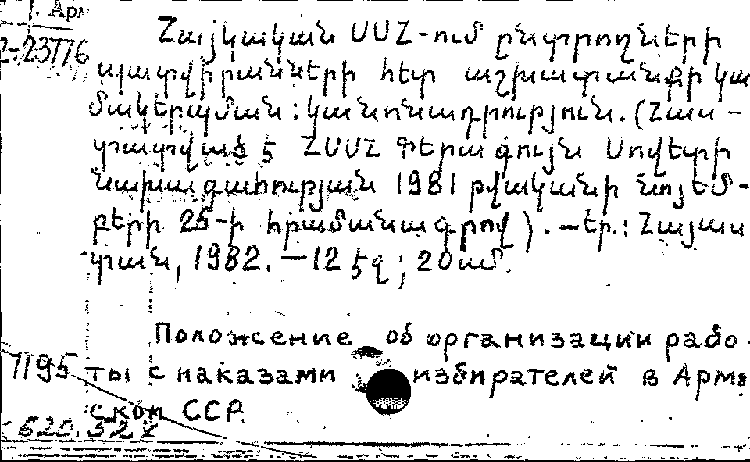 Арм
Հայկական ՍՍՀ-ում ընտրողների
2-23776 պատվիրանների հետ աշխատանքի կա
մակերպման : կանոնադրություն. (Հաս-
տատված է ՀՍՍՀ Գերագույն Սովետի
նախագահության 1981 թվականի նոյեմ-
բերի 25-ի հրամանագրով). — Եր.: Հայաս
տան, 1982. — 12 էջ ; 20 սմ.
Положение об организации рабо
7195 ты с наказами избирателей в Армя
ской ССР.